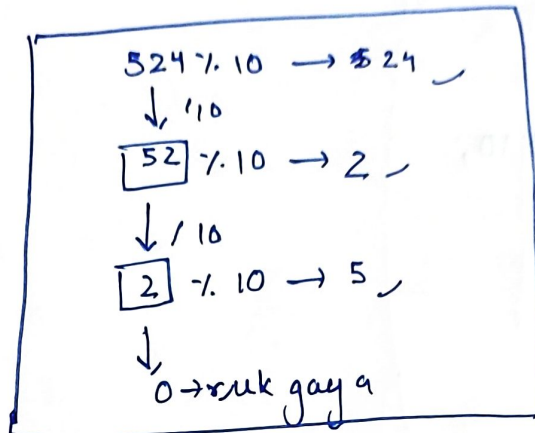 524 % 10 → 524
↓ /10
52 % 10 → 2
↓ / 10
2 % 10 → 5
↓
0 → ruk gaya